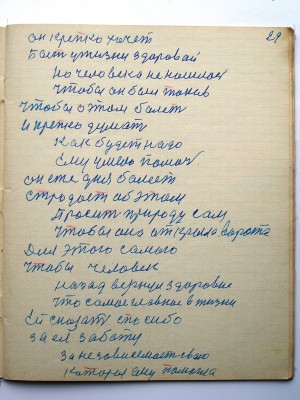 29
он крепко хочет
Быт у жизни здоровай
Но человека не нашлось
Чтобы он был такив
Чтобы о том болет
и крепко думат
Как будет надо
Ему умею помоч.
он сте дня болеет
страдает об этом
Просит природу сам,
Чтобы оно открыла ворота
Для этого самого
Чтобы человек
назад вернул здоровие
Что самое главное в жизни
Ей сказат спасибо
за ея заботу
За независемаст сваю
Которая ему помогла